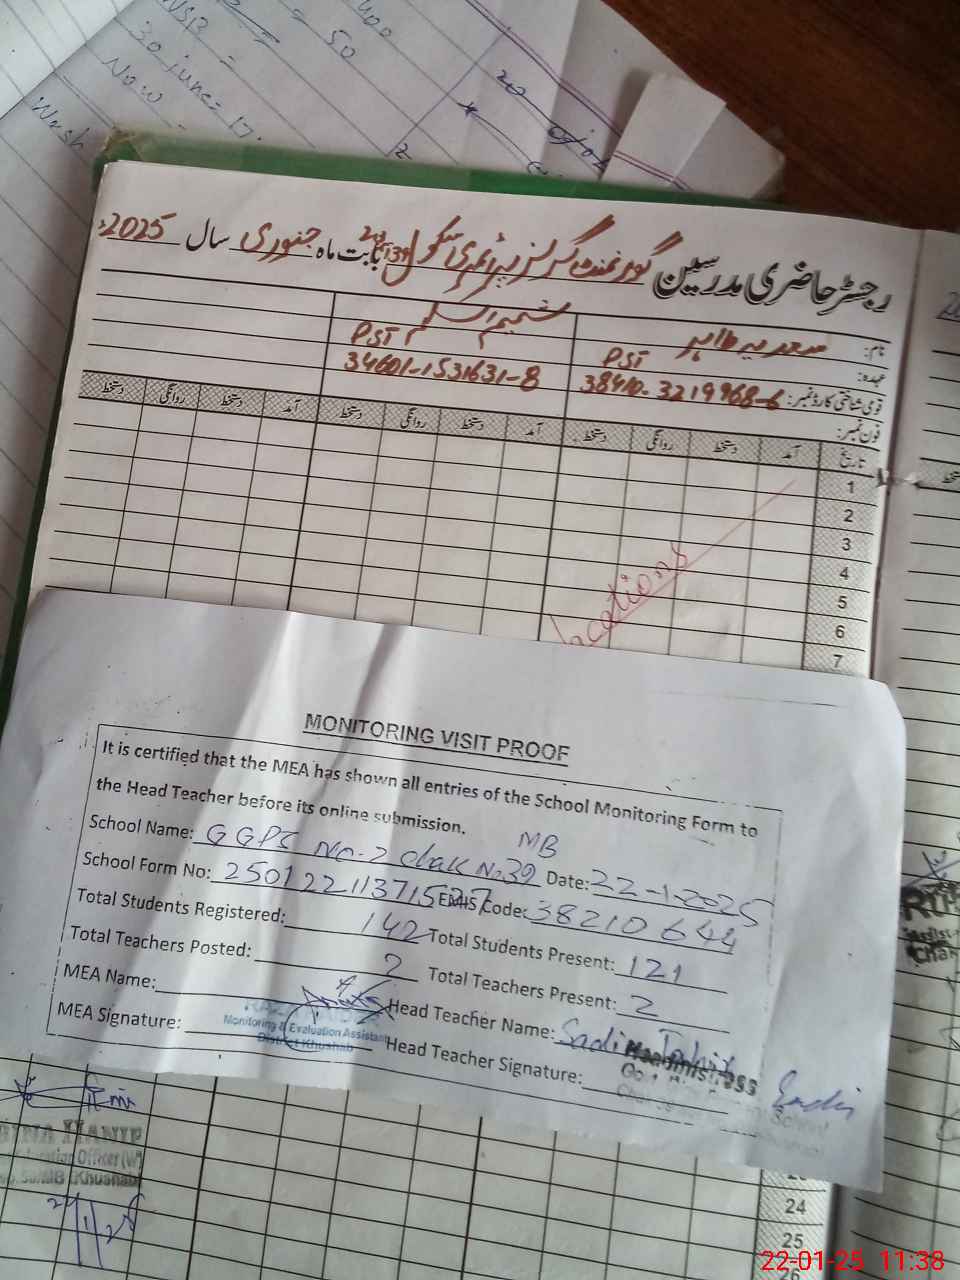 400
50
30 June - 17.
Now
Wash
رجسٹر حاضری مدرسین گورنمنٹ گرلز پرائمری سکول بابت ماہ جنوری سال 2025ء
نام: سعدیہ طاہر شمیم اسلم
عہدہ: PST PST
قومی شناختی کارڈ نمبر: 38410-3219968-6 34601-1531631-8
فون نمبر:
تاریخ آمد دستخط روانگی دستخط آمد دستخط روانگی دستخط آمد دستخط روانگی دستخط
1
2
3
4
5
6
7
MONITORING VISIT PROOF
It is certified that the MEA has shown all entries of the School Monitoring Form to
the Head Teacher before its online submission.
School Name: GGPS No-2 Chak No.39 MB Date: 22-1-2025
School Form No: EMIS Code: 38210644
Total Students Registered: 142 Total Students Present: 121
Total Teachers Posted: 2 Total Teachers Present: 2
MEA Name: Head Teacher Name: Sadi Tahir
Monitoring & Evaluation Assistant
District Khushab
MEA Signature: Head Teacher Signature:
Headmistress
School
HANIF
Officer (W)
Khushab
24
25
26
22-01-25 11:38